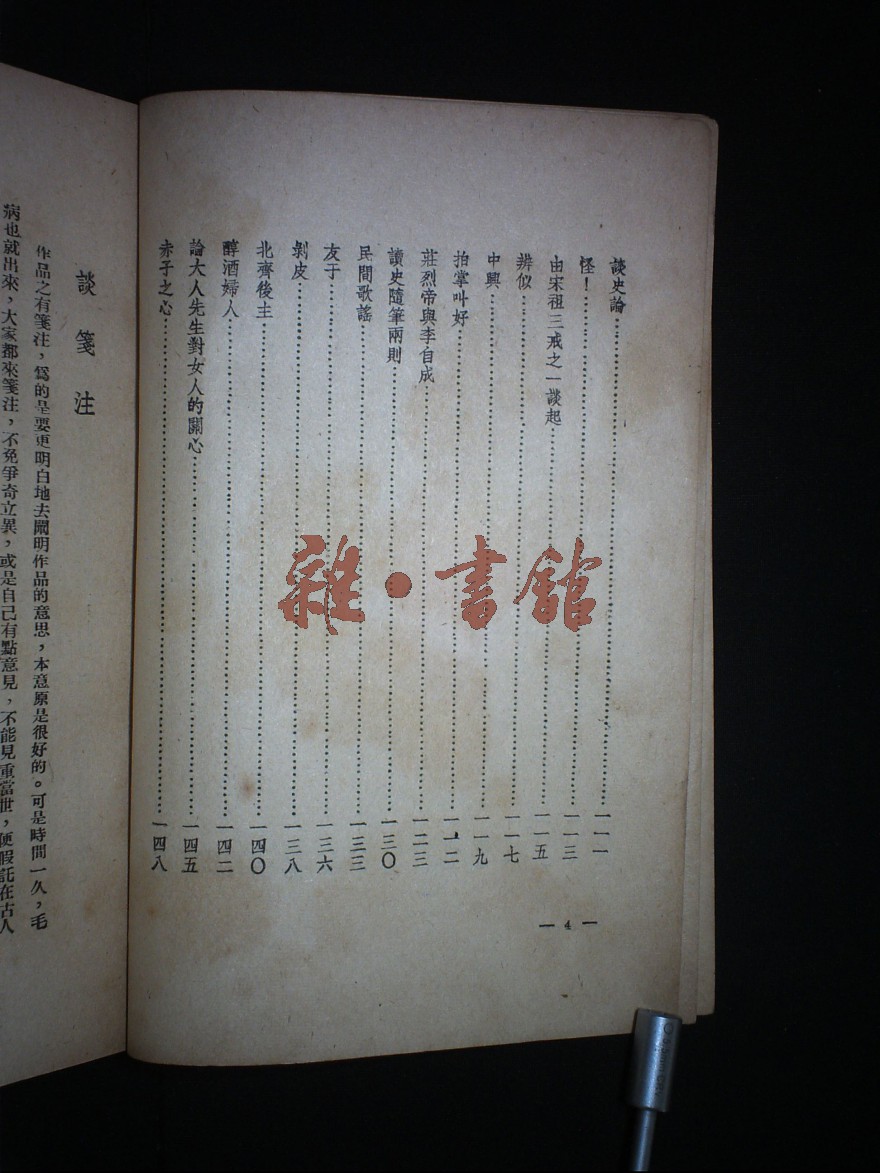 談史論…………一一一
怪！…………一一三
由宋祖三戒之一談起…………一一五
辨似…………一一七
中興…………一一九
拍掌叫好…………一一二
莊烈帝與李自成…………一二三
讀史隨筆兩則…………一三〇
民間歌謠…………一三三
友于…………一三六
剝皮…………一三八
北齊後主…………一四〇
醇酒婦人…………一四二
論大人先生對女人的關心…………一四五
赤子之心…………一四八
— 4 —
雜·書館
談箋注
作品之有箋注，爲的是要更明白地去闡明作品的意思，本意原是很好的。可是時間一久，毛
病也就出來，大家都來箋注，不免爭奇立異，或是自己有點意見，不能見重當世，便假託在古人